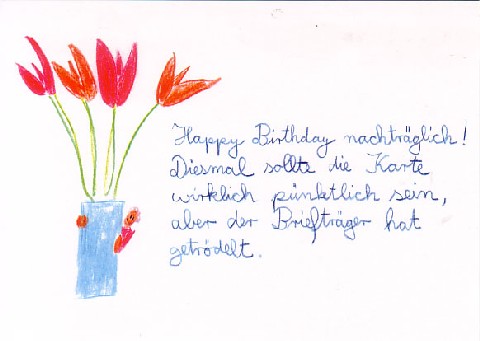 Happy Birthday nachträglich!
Diesmal sollte die Karte
wirklich pünktlich sein,
aber der Briefträger hat
getrödelt.